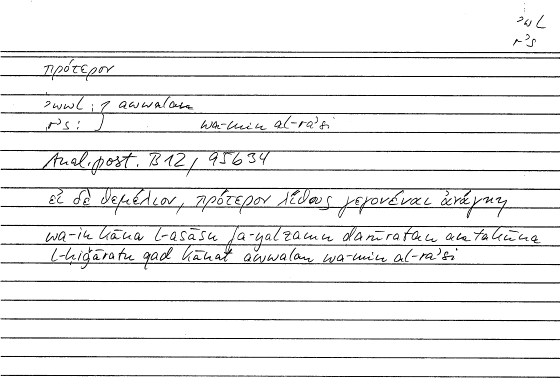 ʾwl
rʾs
πρότερον
ʾwwl : } awwalan
rʾs : } wa-min al-raʾsi
Anal. post. B 12, 95b34
εἰ δὲ θεμέλιον, πρότερον λίθους γεγονέναι ἀνάγκη
wa-in kāna l-asāsu fa-yalzamu ḍarūratan an takūna
l-ḥiǧāratu qad kānat awwalan wa-min al-raʾsi